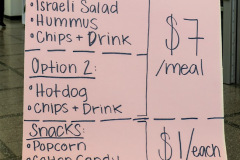 • Israeli Salad
• Hummus
• Chips + Drink
$7
/meal
Option 2:
• Hotdog
• Chips + Drink
Snacks:
• Popcorn
• Cotton Candy
$1/each